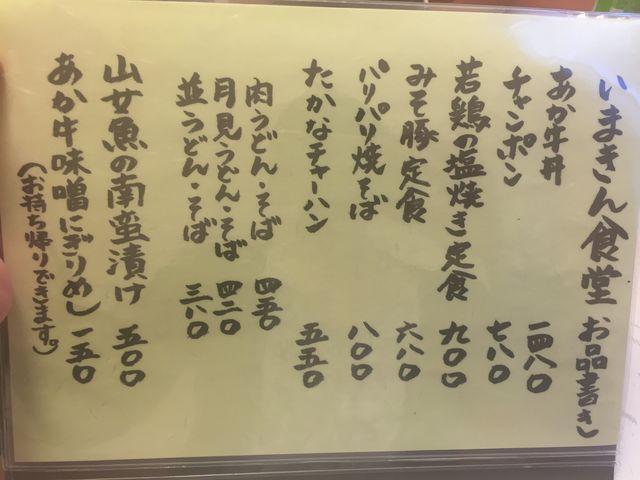 いまきん食堂 お品書き
あか牛丼 一四八〇
チャンポン 七八〇
若鶏の塩焼き定食 九〇〇
みそ豚定食 六八〇
パリパリ焼そば 八〇〇
たかなチャーハン 五五〇
肉うどん・そば 四五〇
月見うどん・そば 四二〇
並うどん・そば 三八〇
山女魚の南蛮漬け 五〇〇
あか牛味噌にぎりめし 一五〇
(お持ち帰りできます。)